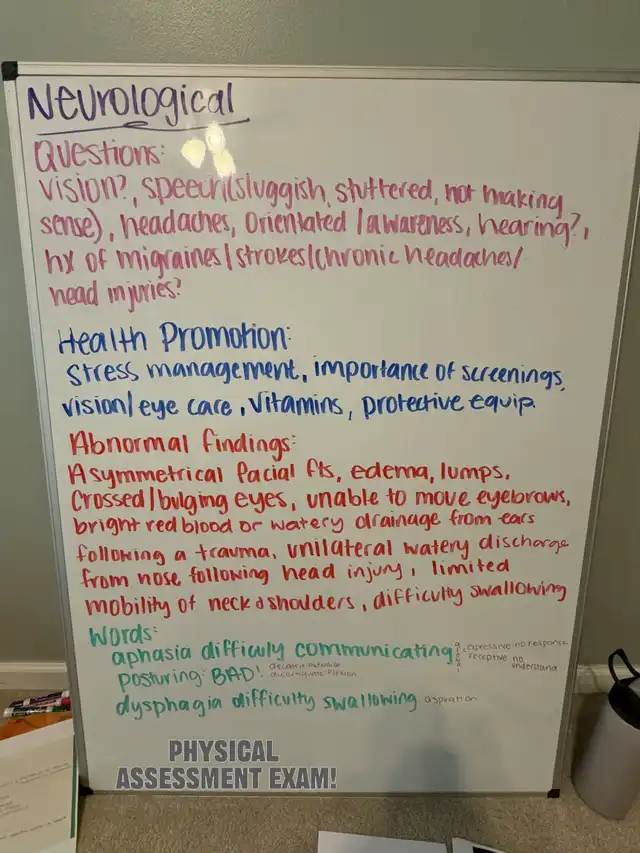 Neurological
Questions:
vision?, speech(sluggish, stuttered, not making
sense), headaches, Orientated/awareness, hearing?,
hx of migraines/strokes/chronic headaches/
head injuries?
Health Promotion:
Stress management, importance of screenings,
vision/eye care, vitamins, protective equip.
Abnormal findings:
Asymmetrical facial fts, edema, lumps,
Crossed/bulging eyes, unable to move eyebrows,
bright red blood or watery drainage from ears
following a trauma, unilateral watery discharge
from nose following head injury, limited
mobility of neck & shoulders, difficulty swallowing
Words:
aphasia difficuly communicating
expressive no response
receptive no
understand
posturing: BAD!
dysphagia difficulty swallowing aspiration
PHYSICAL
ASSESSMENT EXAM!